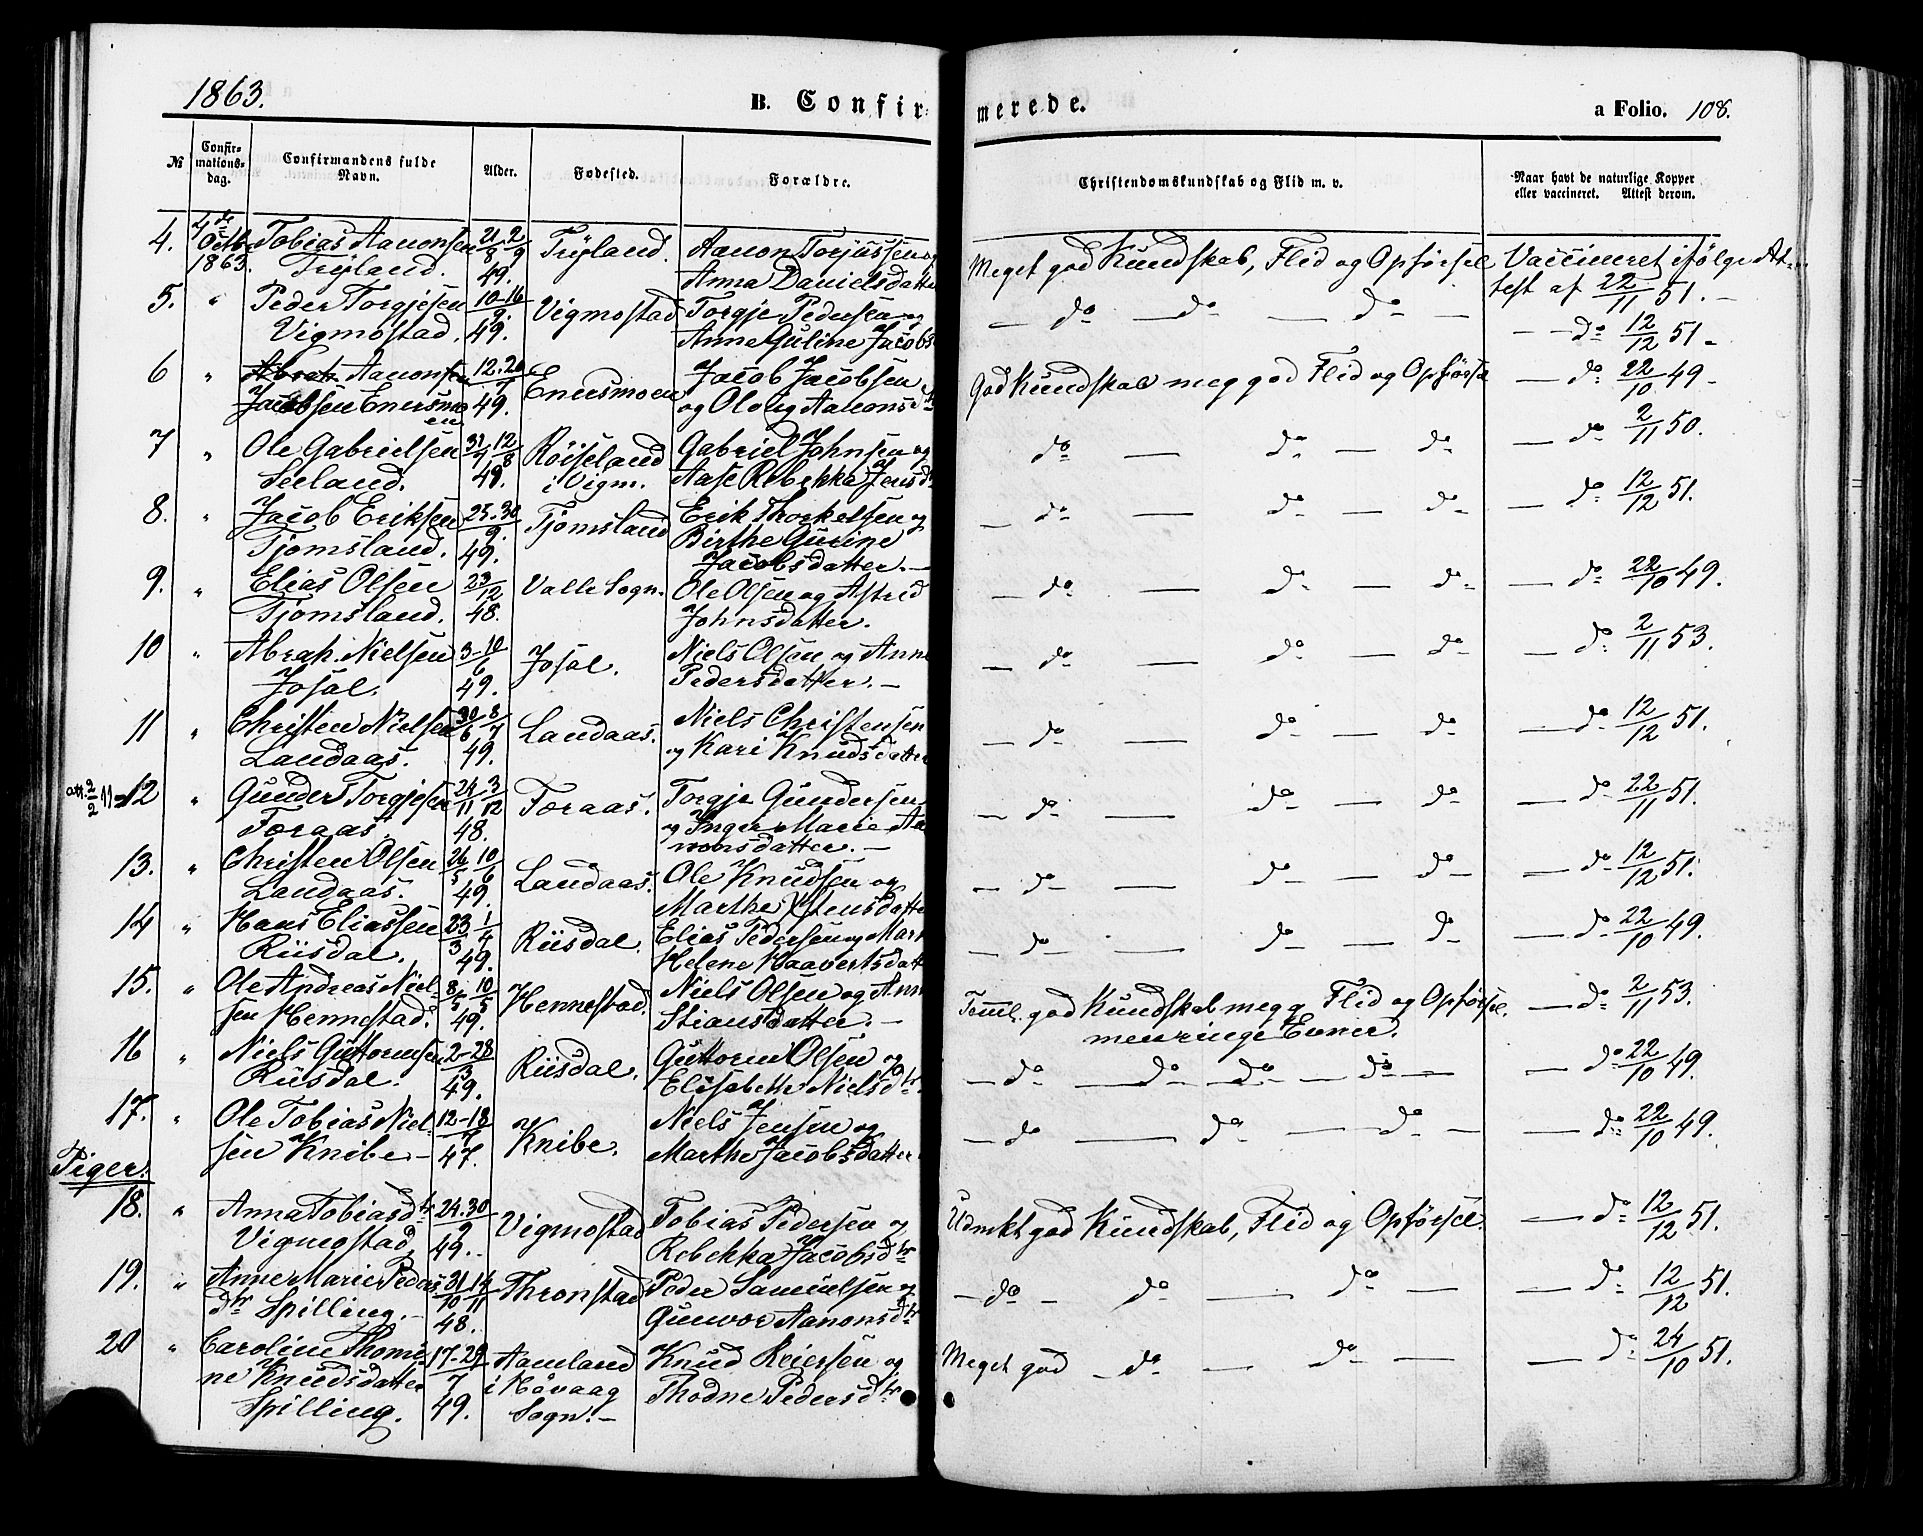 1863.
B. Confir-
merede.
a Folio. 108.
№
Confir-
mations-
dag.
Confirmandens fulde
Navn.
Alder.
Fødested.
Forældre.
Christendomskundskab og Flid m. v.
Naar havt de naturlige Kopper
eller vaccineret. Attest derom.
4. 4de Octb. 1863. Tobias Aanonsen 21/8 2/9 Tryland. Aanon Torjussen og Meget god Kundskab, Flid og Opførsel Vaccineret ifølge At-
Tryland. 49. Anna Danielsdatter test af 22/11 51. -
5. " Peder Torgjesen 10-16/9. Vigmostad Torgje Pedersen og — do — do — do —
Vigmostad. 49. Anne Guline Jacobs — do 12/12 51 -
6 " Abrah. Aanonsen 12.20/7 Enersmoen Jacob Jacobsen God Kundskab meg god Flid og Opførsel — do 22/10 49 -
Jacobsen Enersmo- 49. og Oloug Aanonsdtr
en
7 " Ole Gabrielsen 31/7 12/8 Røiseland Gabriel Johnsen og do — do — do — do 2/11 50.
Seeland. 49. i Vigm. Aase Rebekka Jensd
8. " Jacob Eriksen 25.30/9. Tjomsland Erik Thorkelsen og — do — do — do — do 12/12 51.
Tjomsland. 49. Birthe Gurine
Jacobsdatter. —
9. " Elias Olsen 23/12 Valle Sogn. Ole Olsen og Astrid — do — do — do — do 22/10 49.
Tjomsland. 48. Johnsdatter.
10 " Abrah. Nielsen 3-10/6 Josal. Niels Olsen og Anne — do — do — do — do 2/11 53.
Josal. 49. Pedersdatter. —
11 " Christen Nielsen 30/6 8/7 Landaas. Niels Christensen — do — do — do — do 12/12 51.
Landaas. 49. og Kari Knudsdatter
att. 2/2 11 12 " Gunder Torgjesen 24/11 3/12 Foraas. Torgje Gundersen — do — do — do — do 22/11 51.
Foraas. 48. og Inger Marie Aa
nonsdatter. —
13. " Christen Olsen 26/5 10/6 Landaas. Ole Knudsen og — do — do — do — do 12/12 51.
Landaas. 49. Marthe Stensdatter
14 " Hans Eliassen 23/3 1/4 Riisdal. Elias Pedersen og Mar — do — do — do — do 22/10 49.
Riisdal. 49. Helene Haavertsdatt
15. " Ole Andreas Niel- 8/5 10/5 Hennestad. Niels Olsen og Ann Temml. god Kundskab meg g Flid og Opførsel. — do 2/11 53.
sen Hennestad. 49. Stiansdatter. — men ringe Evner.
16 " Niels Guttormsen 2-28/3 Riisdal. Guttorm Olsen og — do — do — do — do — do 22/10 49.
Riisdal. 49. Elisabeth Nielsdtr
17. " Ole Tobias Niel- 12-18/7 Knibe. Niels Jensen og — do — do — do — — do 22/10 49.
sen Knibe — 47. Marthe Jacobsdatter
Piger.
18. " Anna Tobiasdtr 24.30/9 Vigmostad Tobias Pedersen og Udmkt god Kundskab, Flid og Opførsel. — do 12/12 51.
Vigmostad 49. Rebekka Jacobsdtr
19. " Anne Marie Peders 31/10 14/11 Thronstad Peder Samuelsen og — do — do — do — do 12/12 51.
dtr Spilling. — 48. Gunvor Aanonsdtr
20 " Caroline Thomi- 17-29/7 Aamland Knud Reiersen og Meget god — do — do — — do 24/10 51.
ne Knudsdatter 49. i Høvaag Thodne Pedersdtr
Spilling. Sogn. —